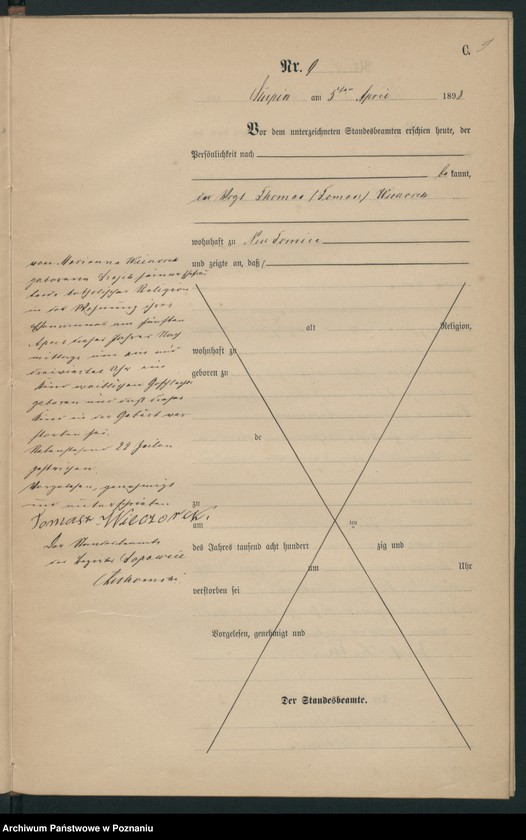 C. 9
Nr. 9
am 5ten April 1898
Vor dem unterzeichneten Standesbeamten erschien heute, der
Persönlichkeit nach
bekannt,
der Vogt Thomas (Tomasz)
wohnhaft zu Neu Tomice
und zeigte an, daß
von Marianna
geborenen
katholischer Religion
in der Wohnung ihres
Ehemannes am fünften
April dieses Jahres Nach
mittags um ein und
dreiviertel Uhr ein
Kind weiblichen Geschlechts
geboren und daß dieses
Kind in der Geburt ver
storben sei.
22 Zeilen
gestrichen.
Vorgelesen, genehmigt
und unterschrieben
Tomasz Wieczorek
Der Standesbeamte
des Bezirks
alt
Religion,
wohnhaft zu
geboren zu
de
zu
am ten
des Jahres tausend acht hundert zig und
um Uhr
verstorben sei
Vorgelesen, genehmigt und
Der Standesbeamte.
Archiwum Państwowe w Poznaniu